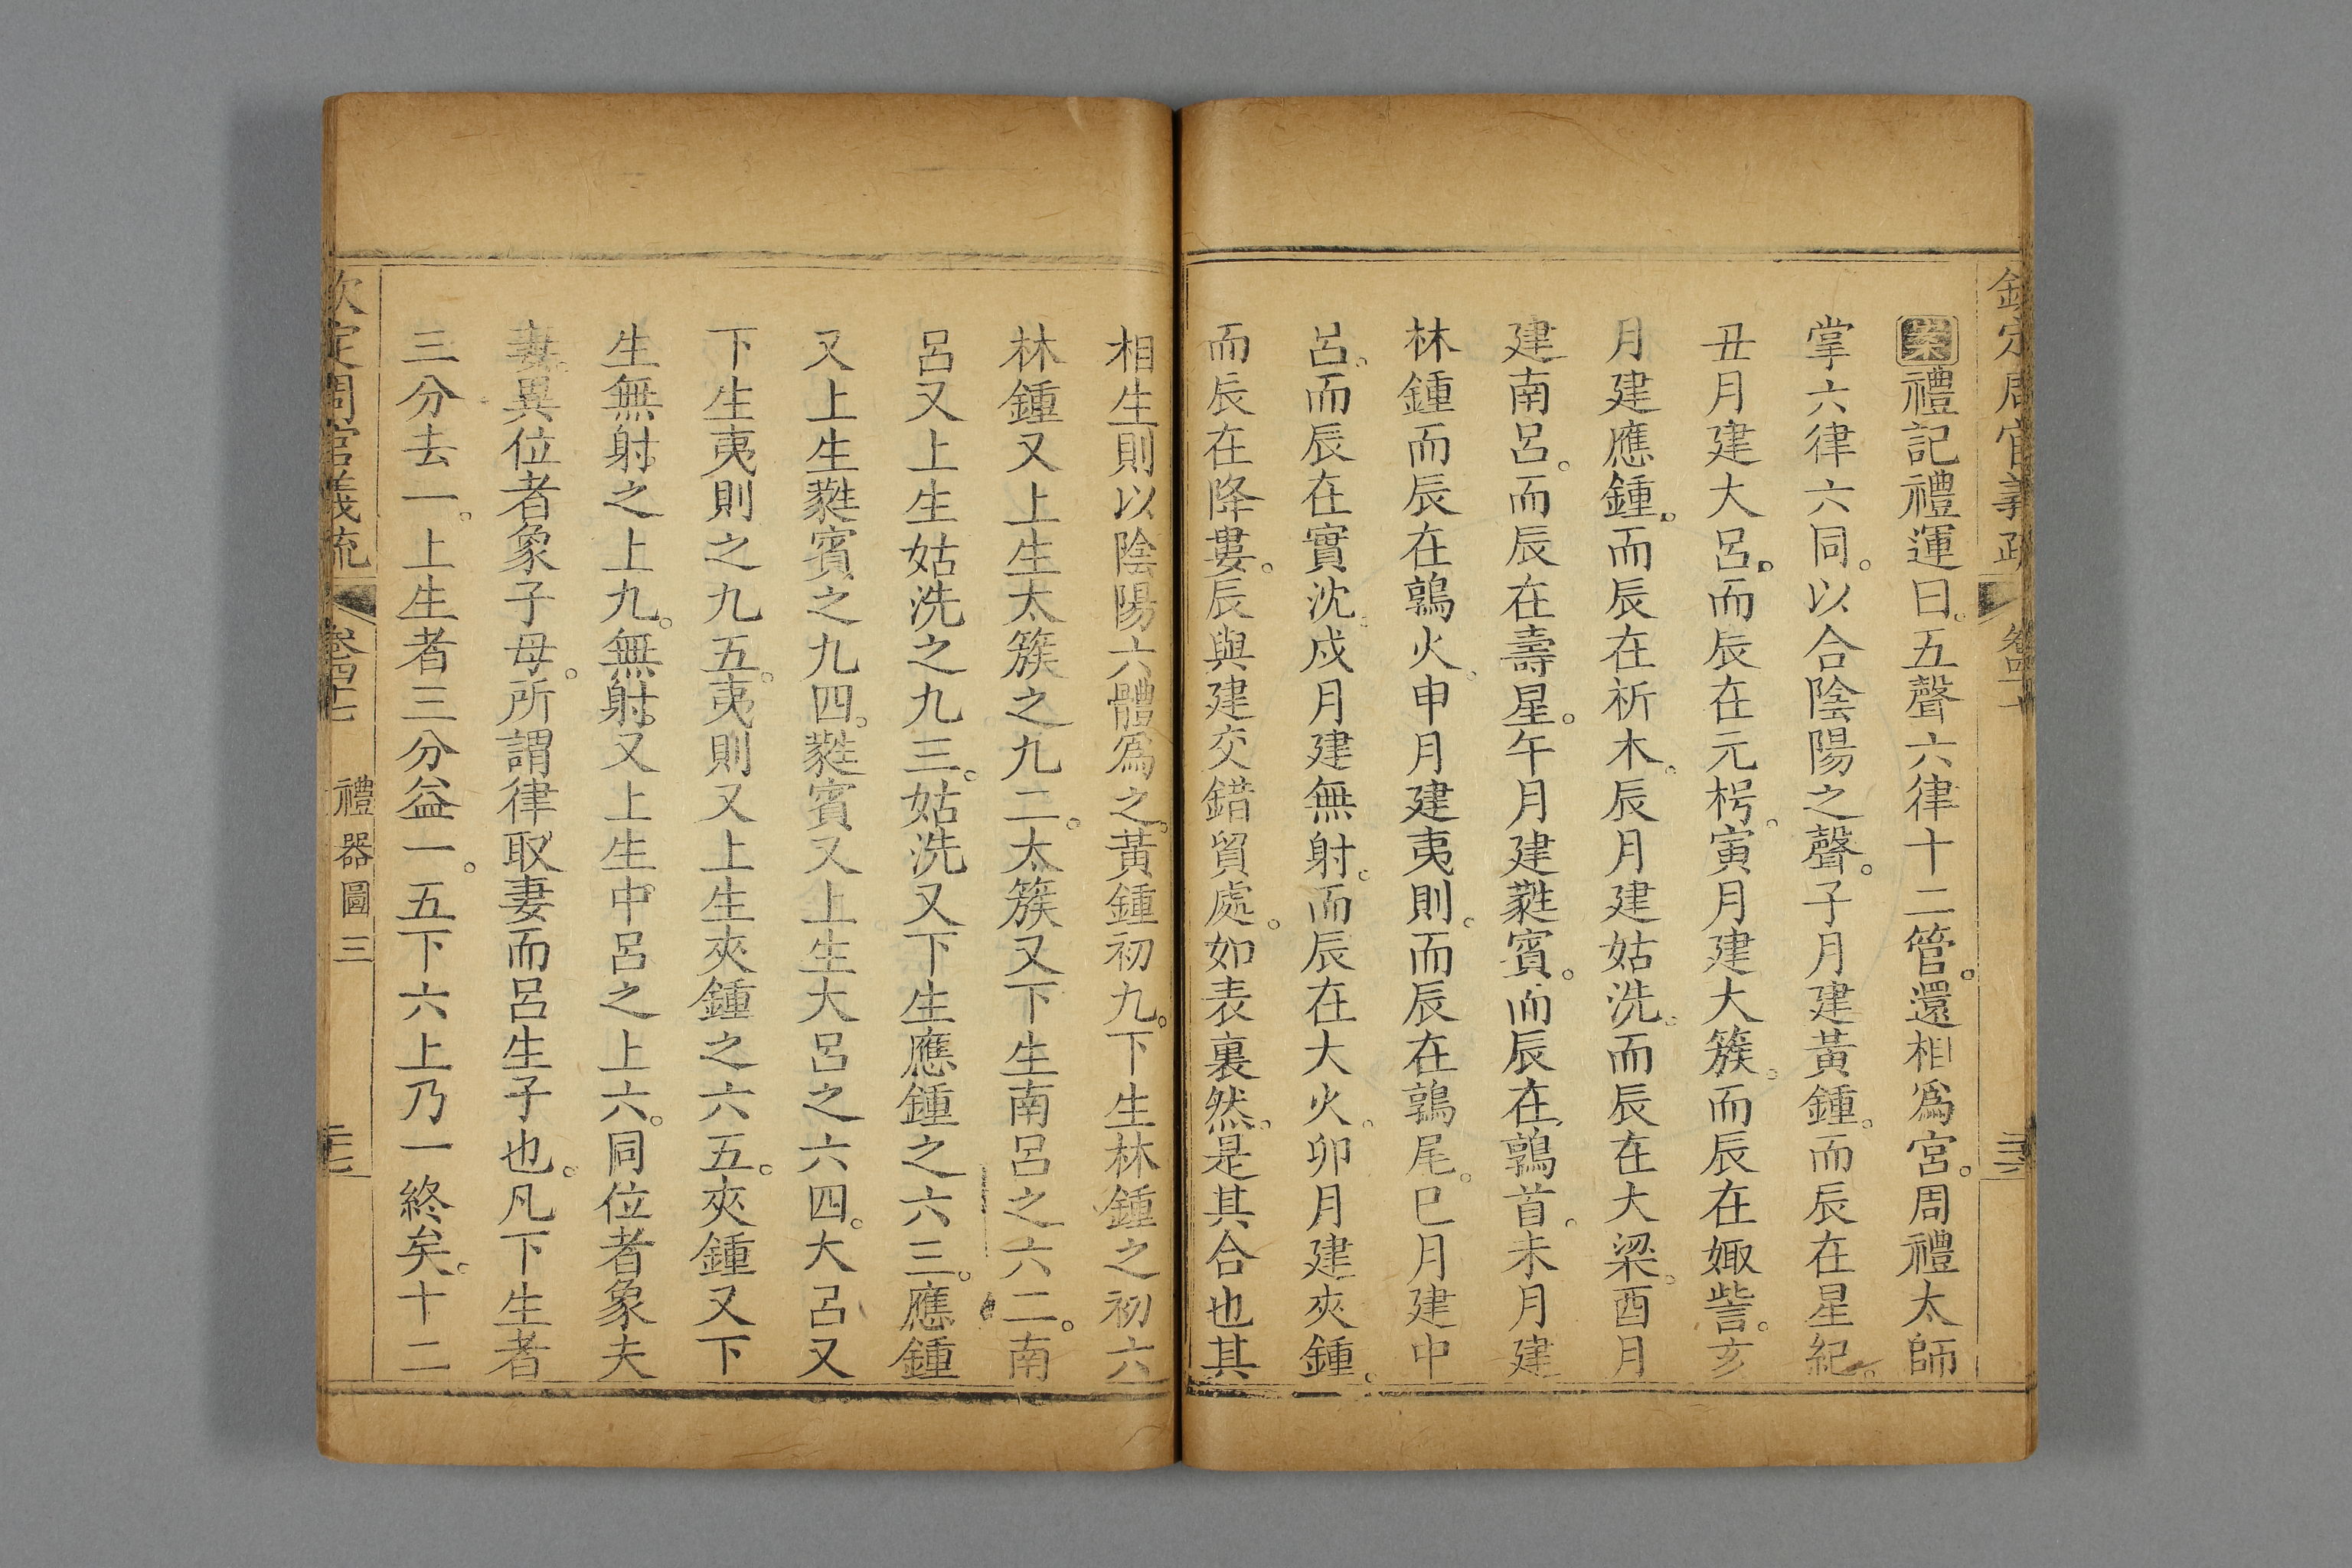 欽定周官義疏 卷四十
案禮記禮運曰。五聲六律十二管。還相爲宮。周禮太師
掌六律六同。以合陰陽之聲。子月建黃鍾。而辰在星紀。
丑月建大呂。而辰在元枵。寅月建大簇。而辰在娵訾。亥
月建應鍾。而辰在祈木。辰月建姑洗。而辰在大梁。酉月
建南呂。而辰在壽星。午月建蕤賓。而辰在鶉首。未月建
林鍾而辰在鶉火。申月建夷則。而辰在鶉尾。巳月建中
呂。而辰在實沈。戍月建無射。而辰在大火。卯月建夾鍾。
而辰在降婁。辰與建交錯貿處。如表裏然。是其合也其
相生則以陰陽六體爲之。黃鍾初九。下生林鍾之初六
林鍾又上生太簇之九二。太簇又下生南呂之六二。南
呂又上生姑洗之九三。姑洗又下生應鍾之六三。應鍾
又上生蕤賓之九四。蕤賓又上生大呂之六四。大呂又
下生夷則之九五。夷則又上生夾鍾之六五。夾鍾又下
生無射之上九。無射又上生中呂之上六。同位者象夫
妻。異位者象子母。所謂律取妻而呂生子也。凡下生者
三分去一。上生者三分益一。五下六上乃一終矣。十二
欽定周官義疏 卷四十七 禮器圖三 三七